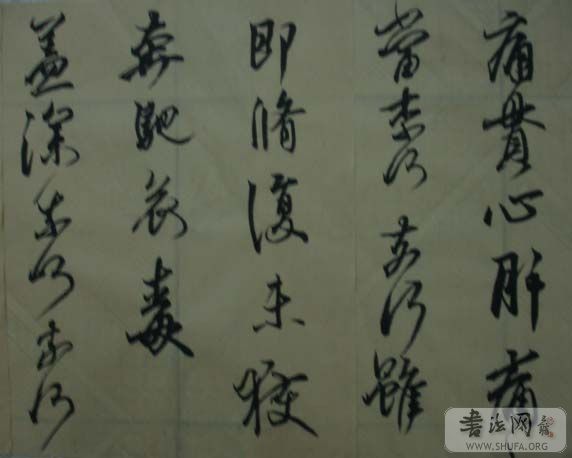 痛貫心肝痛
當奈何奈何雖
即脩復未獲
奔馳哀毒
益深奈何奈何
書法网
WWW.SHUFA.ORG